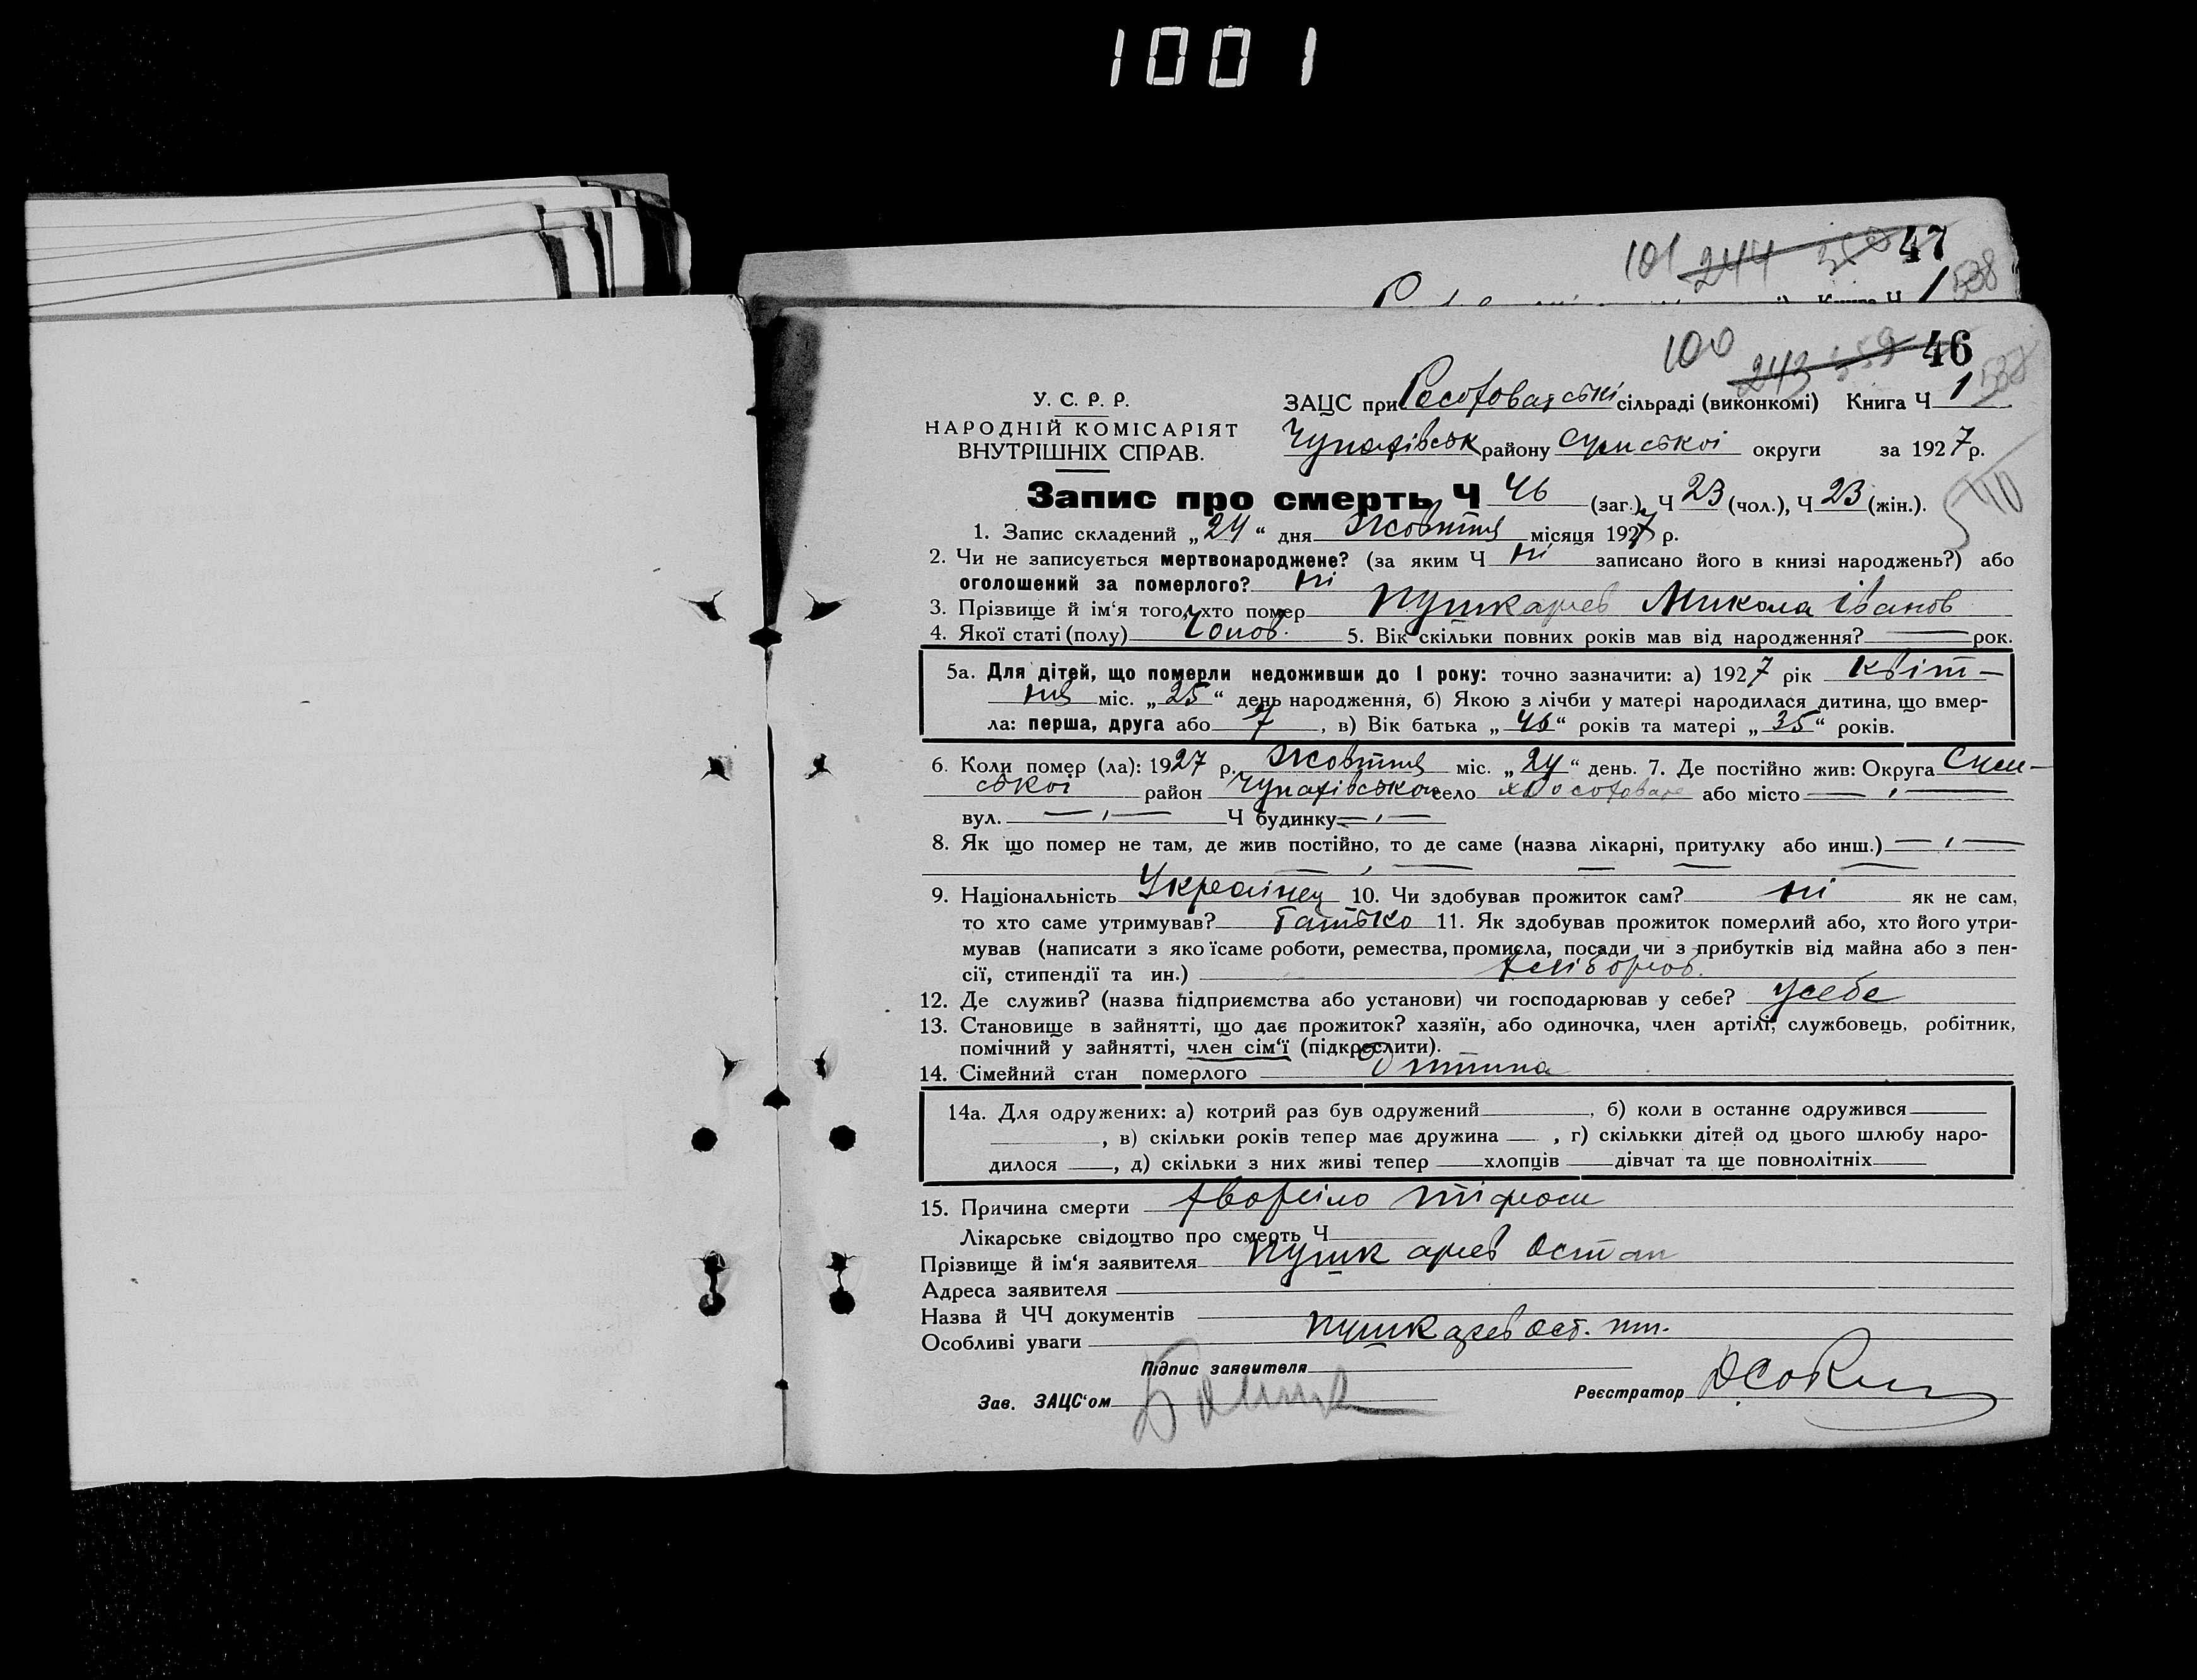 1001
101 244 47
Книга Ч 1 538
100 243 359 46
У. С. Р. Р.
НАРОДНІЙ КОМІСАРІЯТ
ВНУТРІШНІХ СПРАВ.
ЗАЦС при сільраді (виконкомі) Книга Ч 1
Чупахівськ району Сумської округи за 1927 р.
Запис про смерть Ч 46 (заг.), Ч 23 (чол.), Ч 23 (жін.).
1. Запис складений „24“ дня Жовтня місяця 1927 р.
2. Чи не записується мертвонароджене? (за яким Ч ні записано його в книзі народжень?) або
оголошений за померлого? ні
3. Прізвище й ім‘я того, хто помер Пушкарьов Микола Іванов
4. Якої статі (полу) Чолов. 5. Вік скільки повних років мав від народження? — рок.
5а. Для дітей, що померли недоживши до 1 року: точно зазначити: а) 1927 рік квіт-
ня міс. „25“ день народження, б) Якою з лічби у матері народилася дитина, що вмер-
ла: перша, друга або 7, в) Вік батька „46“ років та матері „35“ років.
6. Коли помер (ла): 1927 р. Жовтня міс. „24“ день. 7. Де постійно жив: Округа Сум-
ської район Чупахівсько село або місто — „ —
вул. — „ — Ч будинку — „ —
8. Як що помер не там, де жив постійно, то де саме (назва лікарні, притулку або инш.) — „ —
9. Національність Українец 10. Чи здобував прожиток сам? ні як не сам,
то хто саме утримував? Батько 11. Як здобував прожиток померлий або, хто його утри-
мував (написати з яко їсаме роботи, ремества, промисла, посади чи з прибутків від майна або з пен-
сії, стипендії та ин.) хлібороб.
12. Де служив? (назва підприємства або установи) чи господарював у себе? усебе
13. Становище в зайнятті, що дає прожиток? хазяїн, або одиночка, член артілі, службовець, робітник,
помічний у зайнятті, член сім‘ї (підкреслити).
14. Сімейний стан померлого Дитина
14а. Для одружених: а) котрий раз був одружений , б) коли в останнє одружився
, в) скільки років тепер має дружина , г) скількки дітей од цього шлюбу наро-
дилося , д) скільки з них живі тепер хлопців дівчат та ще повнолітніх
15. Причина смерти хворіло
Лікарське свідоцтво про смерть Ч
Прізвище й ім‘я заявителя Пушкарьов Остап
Адреса заявителя
Назва й ЧЧ документів
Особливі уваги Пушкарьов Ост.
Підпис заявителя
Зав. ЗАЦС‘ом
Реєстратор